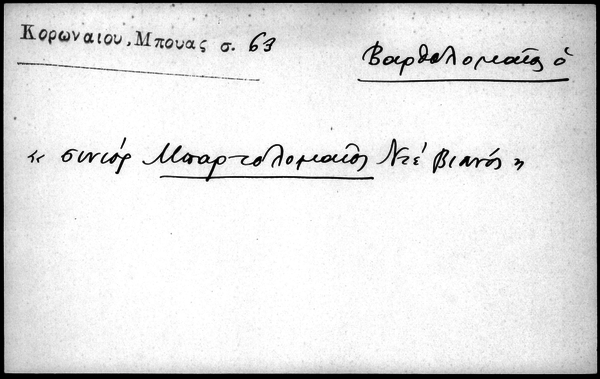 Κορωναιου, Μπουας σ. 63
Βαρθολομαῖος ὁ
« σινιόρ Μπαρτολομαῖος Ντέ Βιανός »